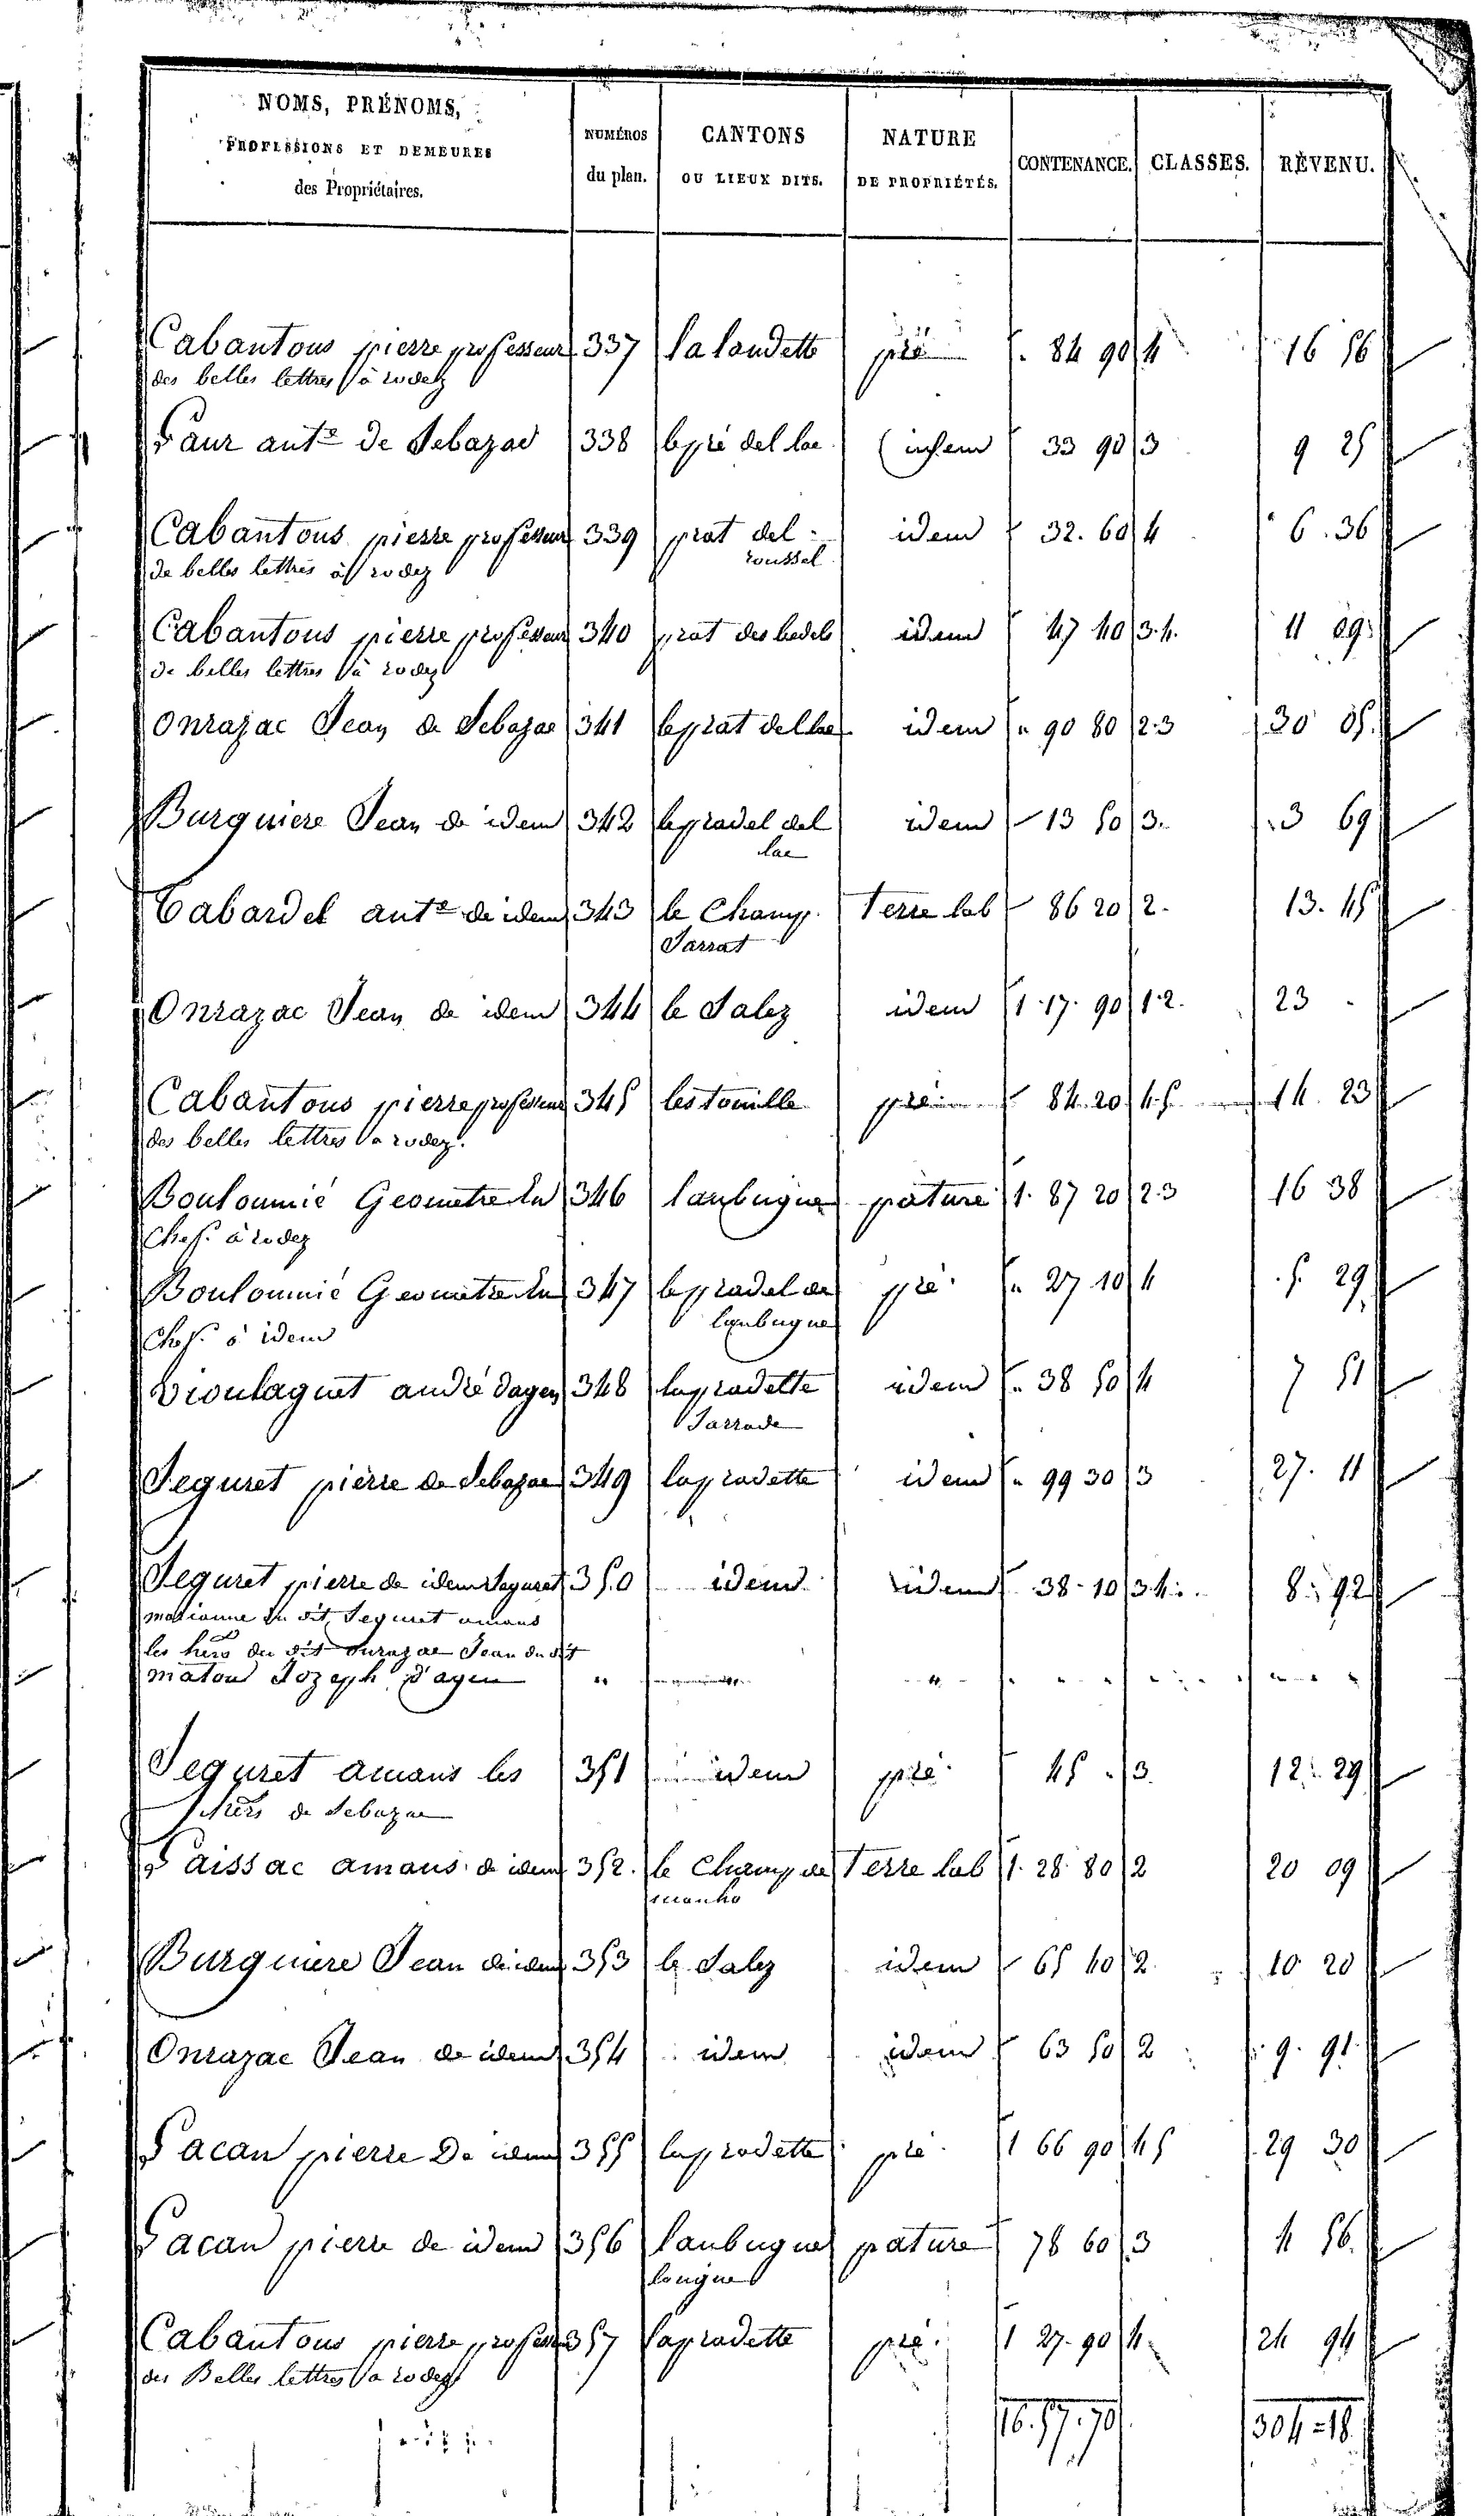 NOMS, PRÉNOMS, PROFESSIONS ET DEMEURES des Propriétaires. NUMÉROS du plan. CANTONS OU LIEUX DITS. NATURE DE PROPRIÉTÉS. CONTENANCE. CLASSES. REVENU.
Cabantous pierre professeur 337 la landette pré 84 90 4 16 56
des belles lettres à rodez
Faur ante de Sebazac 338 le pré del lac idem 33 90 3 9 25
Cabantous pierre professeur 339 prat del idem 32. 60 4 6. 36
de belles lettres à rodez roussel
Cabantous pierre professeur 340 prat des bedels idem 47 40 3.4. 11 09
de belles lettres à rodez
Onrazac Jean de Sebazac 341 le prat del lac idem " 90 80 2.3 30 05.
Burguiere Jean de idem 342 le pradel del idem 13 50 3. 3 69
lac
Cabardel ante de idem 343 le Champ Terre lab 86 20 2. 13. 45
Sarrat
Onrazac Jean de idem 344 le Salez idem 1. 17. 90 1.2. 23
Cabantous pierre professeur 345 pré 84. 20 4.5. 14. 23
des belles lettres a rodez.
Bouloumié Geometre En 346 laubugue pature 1. 87 20 2.3 16 38
Chef. à rodez
Bouloumié Geometre En 347 le pradel de pré " 27 10 4 5. 29
Chef. à idem laubugue
Vioulaguet andré dagen 348 la pradette idem " 38 50 4 7 51
Sarrade
Seguret pierre de Sebazac 349 la pradette idem " 99 30 3 27. 11
Seguret pierre de idem Seguret 350 idem idem 38 10 3.4. 8. 92
marianne du dit Seguret amans
les hers du dit Onrazac Jean du dit
matou Jozeph d'agen
Seguret amans les 351 idem pré 45 " 3. 12. 29
hers de Sebazac
amans de idem 352. le Champ de Terre lab 1. 28. 80 2 20 09
Burguiere Jean de idem 353 le Salez idem 65 40 2. 10 20
Onrazac Jean de idem 354 idem idem 63 50 2 9. 91
Lacan pierre De idem 355 la pradette pré 1 66 90 4 5 29 30
Lacan pierre de idem 356 laubugue pature 78 60 3 4 56.
longue
Cabantous pierre professeur 357 la pradette pré. 1 27. 90 4. 24 94
des Belles lettres a rodez
16. 57. 70 304 = 18